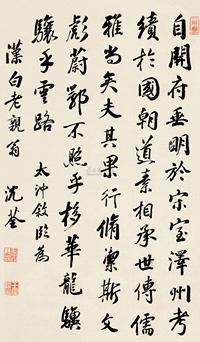 自開府垂明於宗室澤州考
績於國朝道素相承世傳儒
雅尚矣夫其果行脩潔斯文
彪蔚鄂不照乎栘華龍驥
驤乎雲路 太沖敘臨為
白老親翁 沈荃